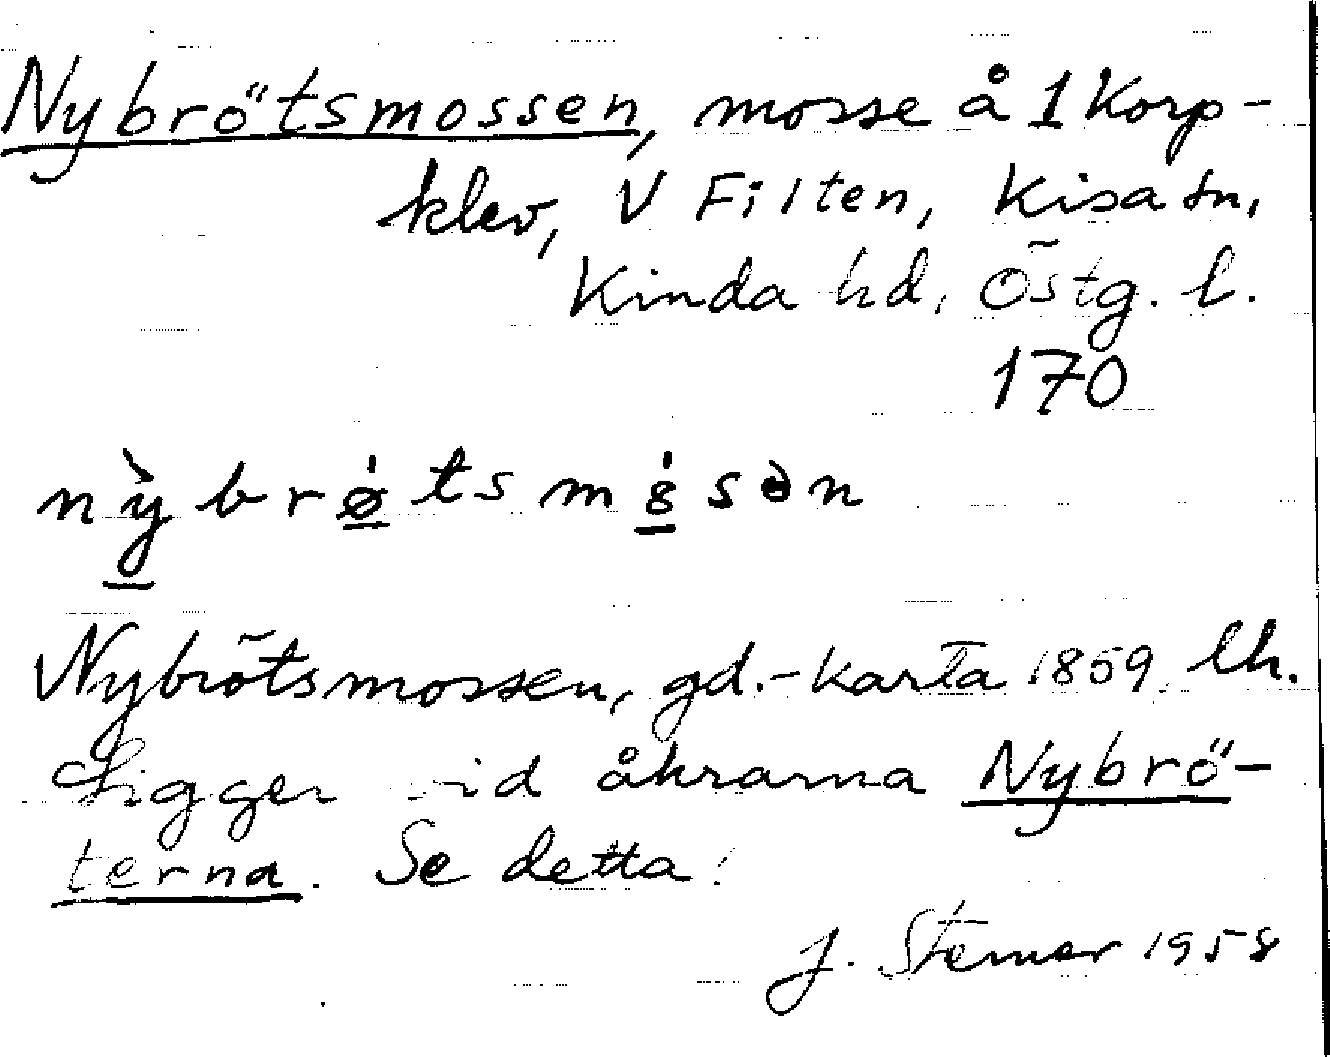 Nybrötsmossen, mosse å 1 Korp-
klev, V Filten, Kisa sn,
Kinda hd, Östg. l.
170
nỳbrø̇tsmȯ̇sən
Nybrötsmossen, gd.-karta 1859. lh.
Ligger vid åkrarna Nybrö-
terna. Se detta!
J. Sterner 1958